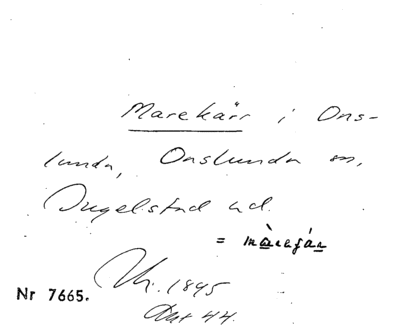 Marekärr i Ons-
lunda, Onslunda sn,
Ingelstad hd.
= màregár
Nr 7665. 1845
44.